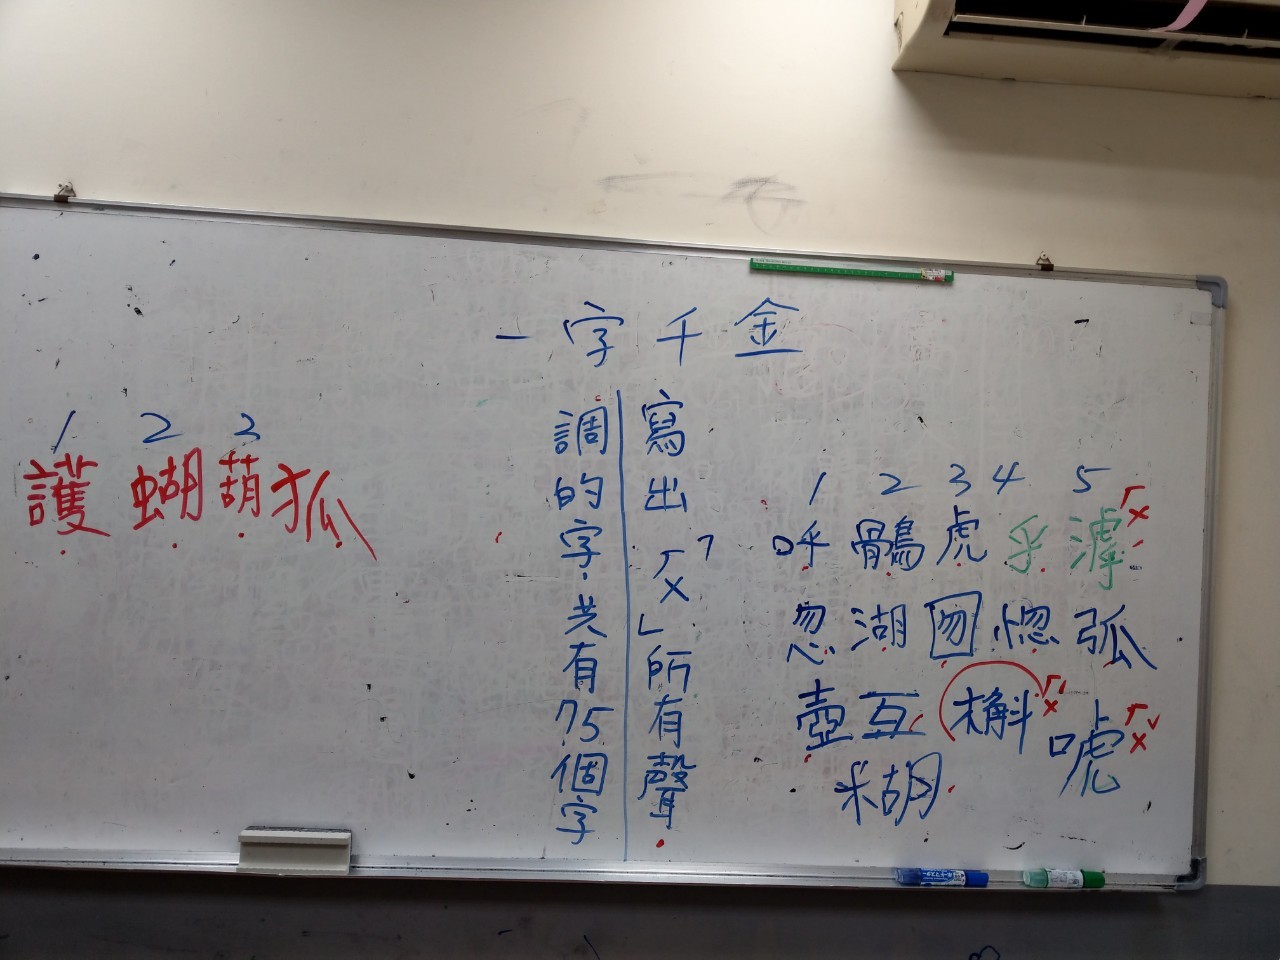 一字千金
寫出「ㄏㄨ」所有聲
調的字,共有75個字
1 2 3
護 蝴 葫 狐
1 2 3 4 5
呼 鶻 虎 乎 滹 ㄏㄨ
忽 湖 囫 惚 弧
壺 互 槲 ㄏㄨˊ 唬 ㄏㄨˇ
糊